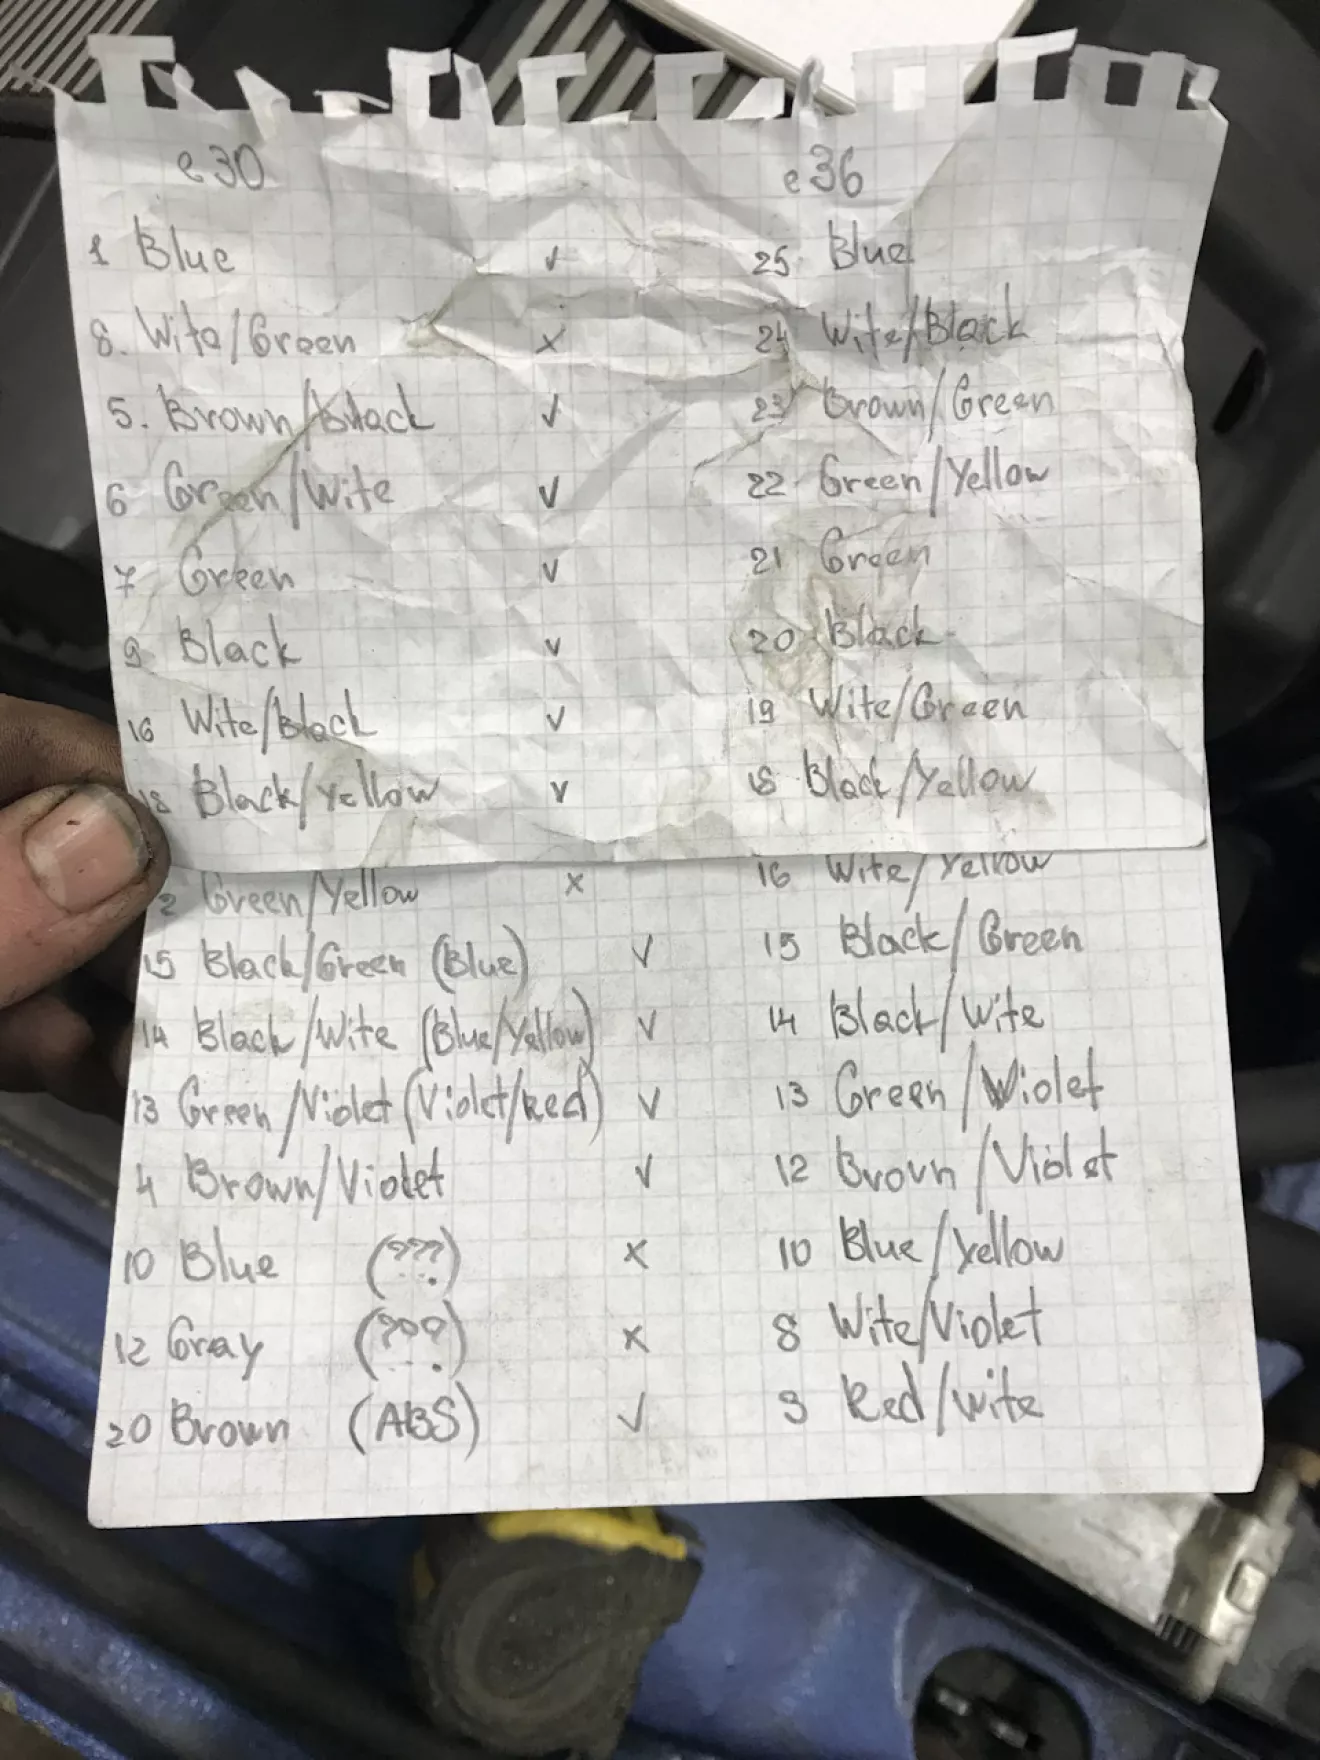 e30 e36
1 Blue v 25. Blue
8. Wite/Green x 24 Wite/Black
5. Brown/Black v 23 Brown/Green
6 Green/Wite v 22. Green/Yellow
7 Green v 21 Green
9 Black v 20 Black
16 Wite/Black v 19 Wite/Green
18 Black/Yellow v 18 Black/Yellow
2 Green/Yellow x 16 Wite/Yellow
15 Black/Green (Blue) v 15 Black/Green
14 Black/Wite (Blue/Yellow) v 14 Black/Wite
13 Green/Violet (Violet/Red) v 13 Green/Violet
4 Brown/Violet v 12 Brovn/Violet
10 Blue (???) x 10 Blue/Yellow
12 Gray (???) x 8 Wite/Violet
20 Brown (ABS) v 3 Red/Wite